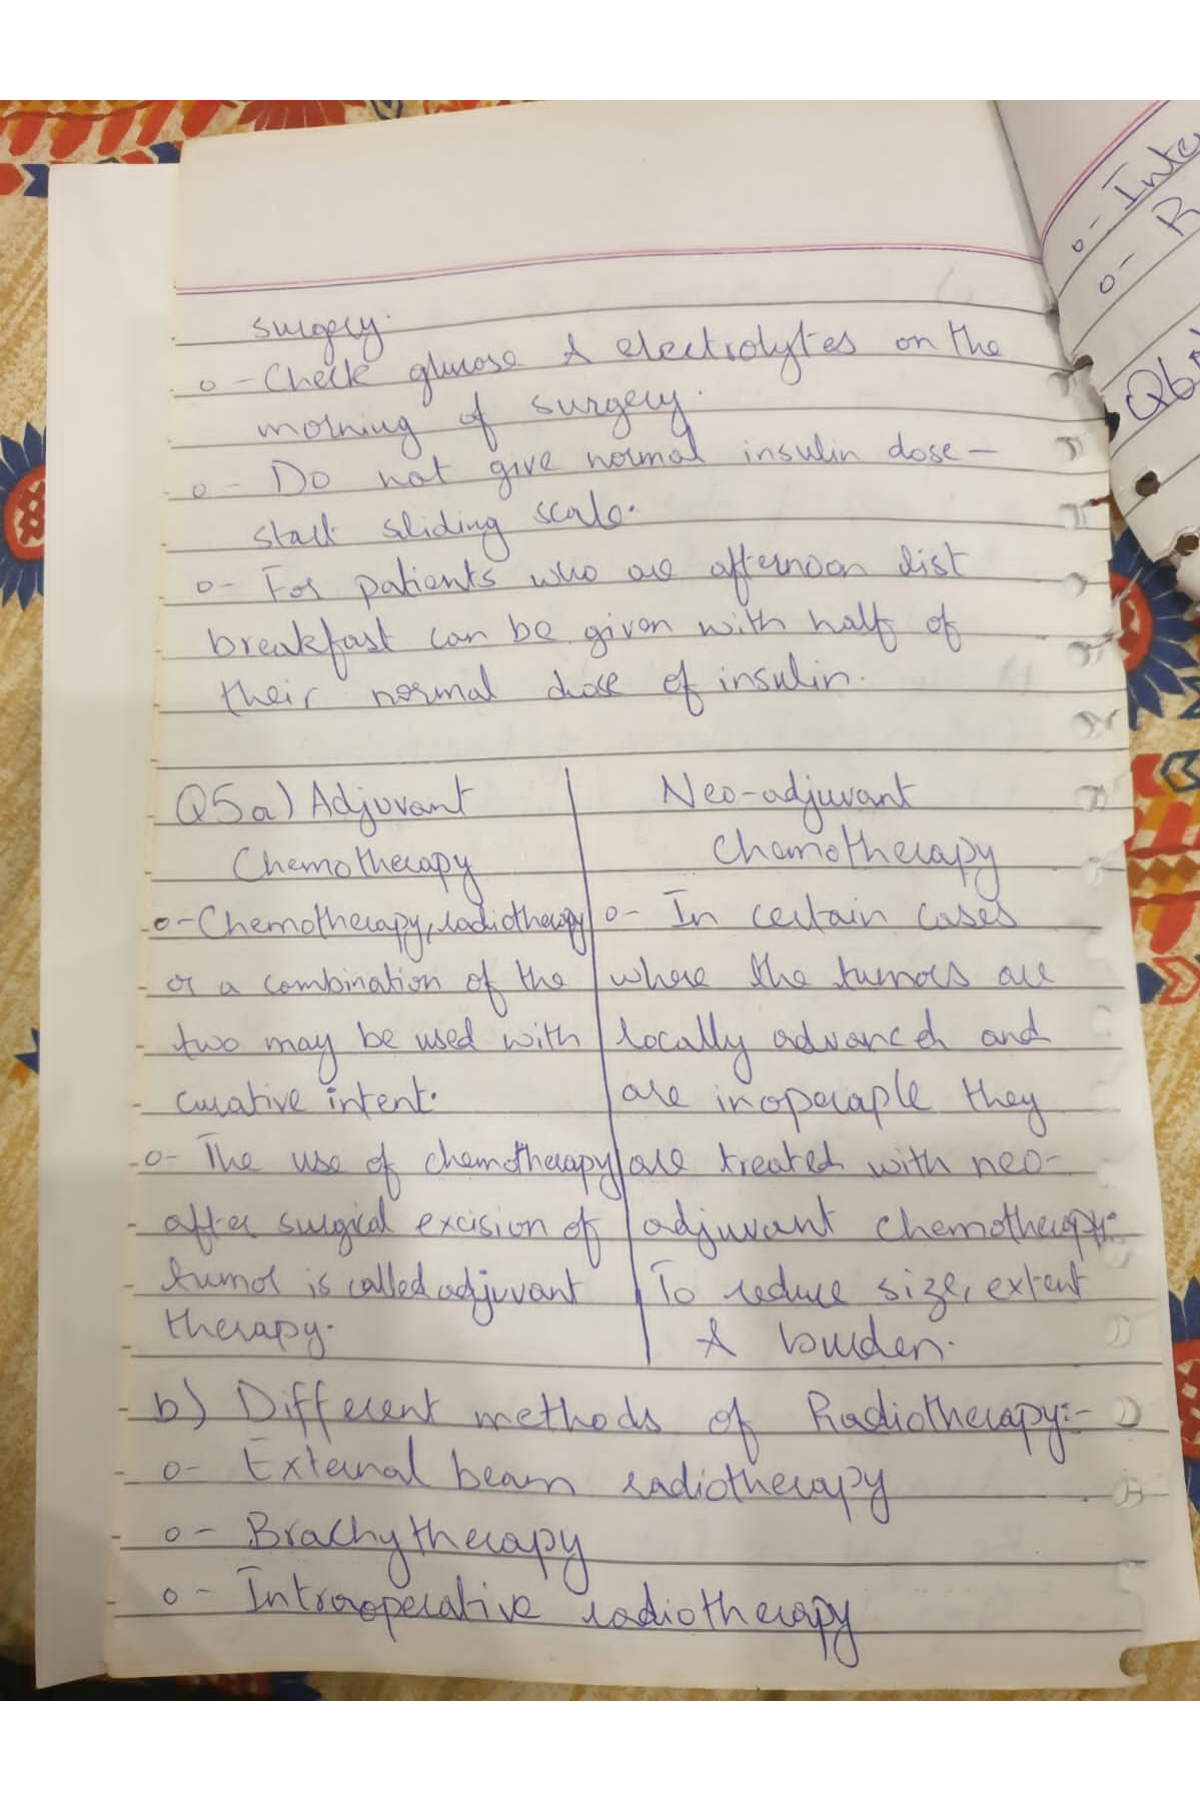 surgery.
o- Check glucose & electrolytes on the
morning of surgery.
o- Do not give normal insulin dose -
start sliding scale.
o- For patients who are afternoon list
breakfast can be given with half of
their normal dose of insulin.
Q5a) Adjuvant
Chemotherapy
o- Chemotherapy, radiotherapy
or a combination of the
two may be used with
curative intent.
o- The use of chemotherapy
after surgical excision of
tumor is called adjuvant
therapy.
Neo-adjuvant
Chemotherapy
o- In certain cases
where the tumors are
locally advanced and
are inoperaple they
are treated with neo-
adjuvant chemotherapy:
To reduce size, extent
& burden.
b) Different methods of Radiotherapy:-
o- External beam radiotherapy
o- Brachytherapy
o- Intraoperative radiotherapy
o- Inte
o- R
Q6